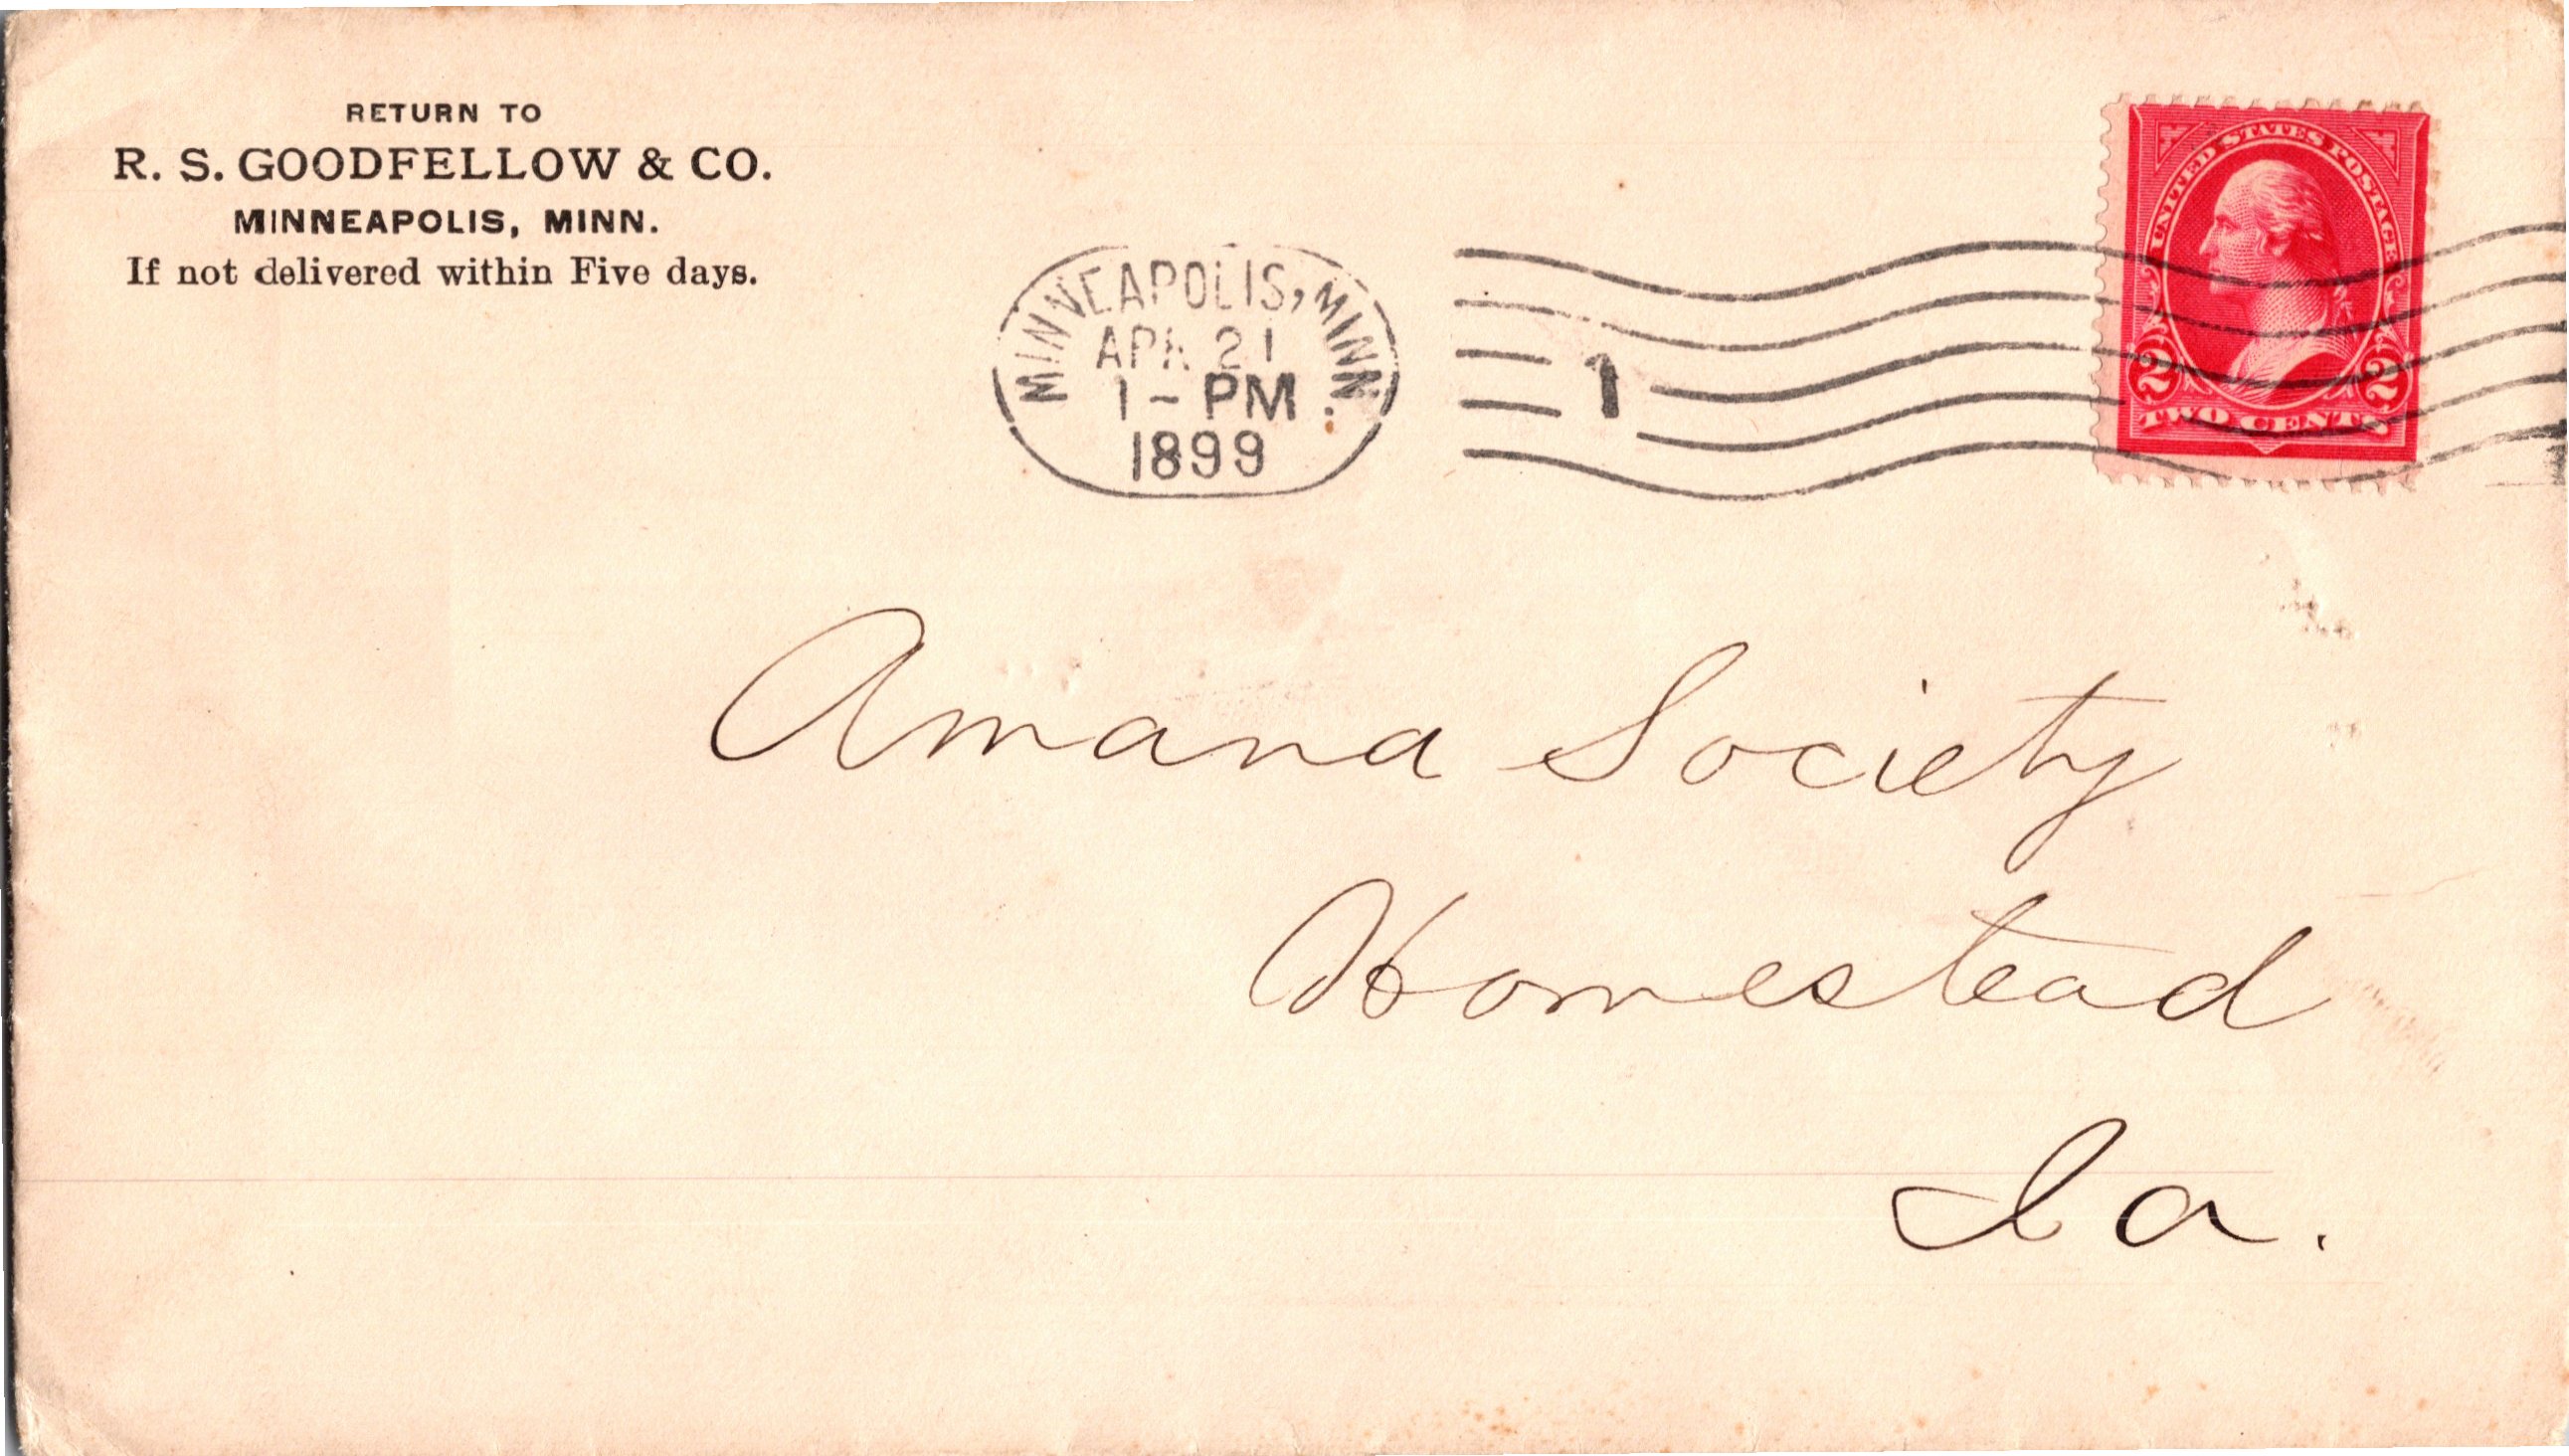 RETURN TO
R. S. GOODFELLOW & CO.
MINNEAPOLIS, MINN.
If not delivered within Five days.
MINNEAPOLIS, MINN.
APR 21
1 - PM
1899
1
UNITED STATES POSTAGE
2 2
TWO CENTS
Amana Society
Homestead
Ia.